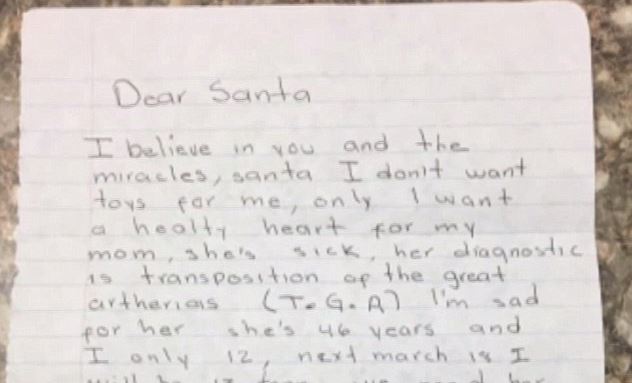 Dear Santa
I believe in you and the
miracles, santa I don't want
toys for me, only I want
a healty heart for my
mom, she's sick, her diagnostic
is transposition of the great
artherias (T.G.A) I'm sad
for her she's 46 years and
I only 12, next march 18 I